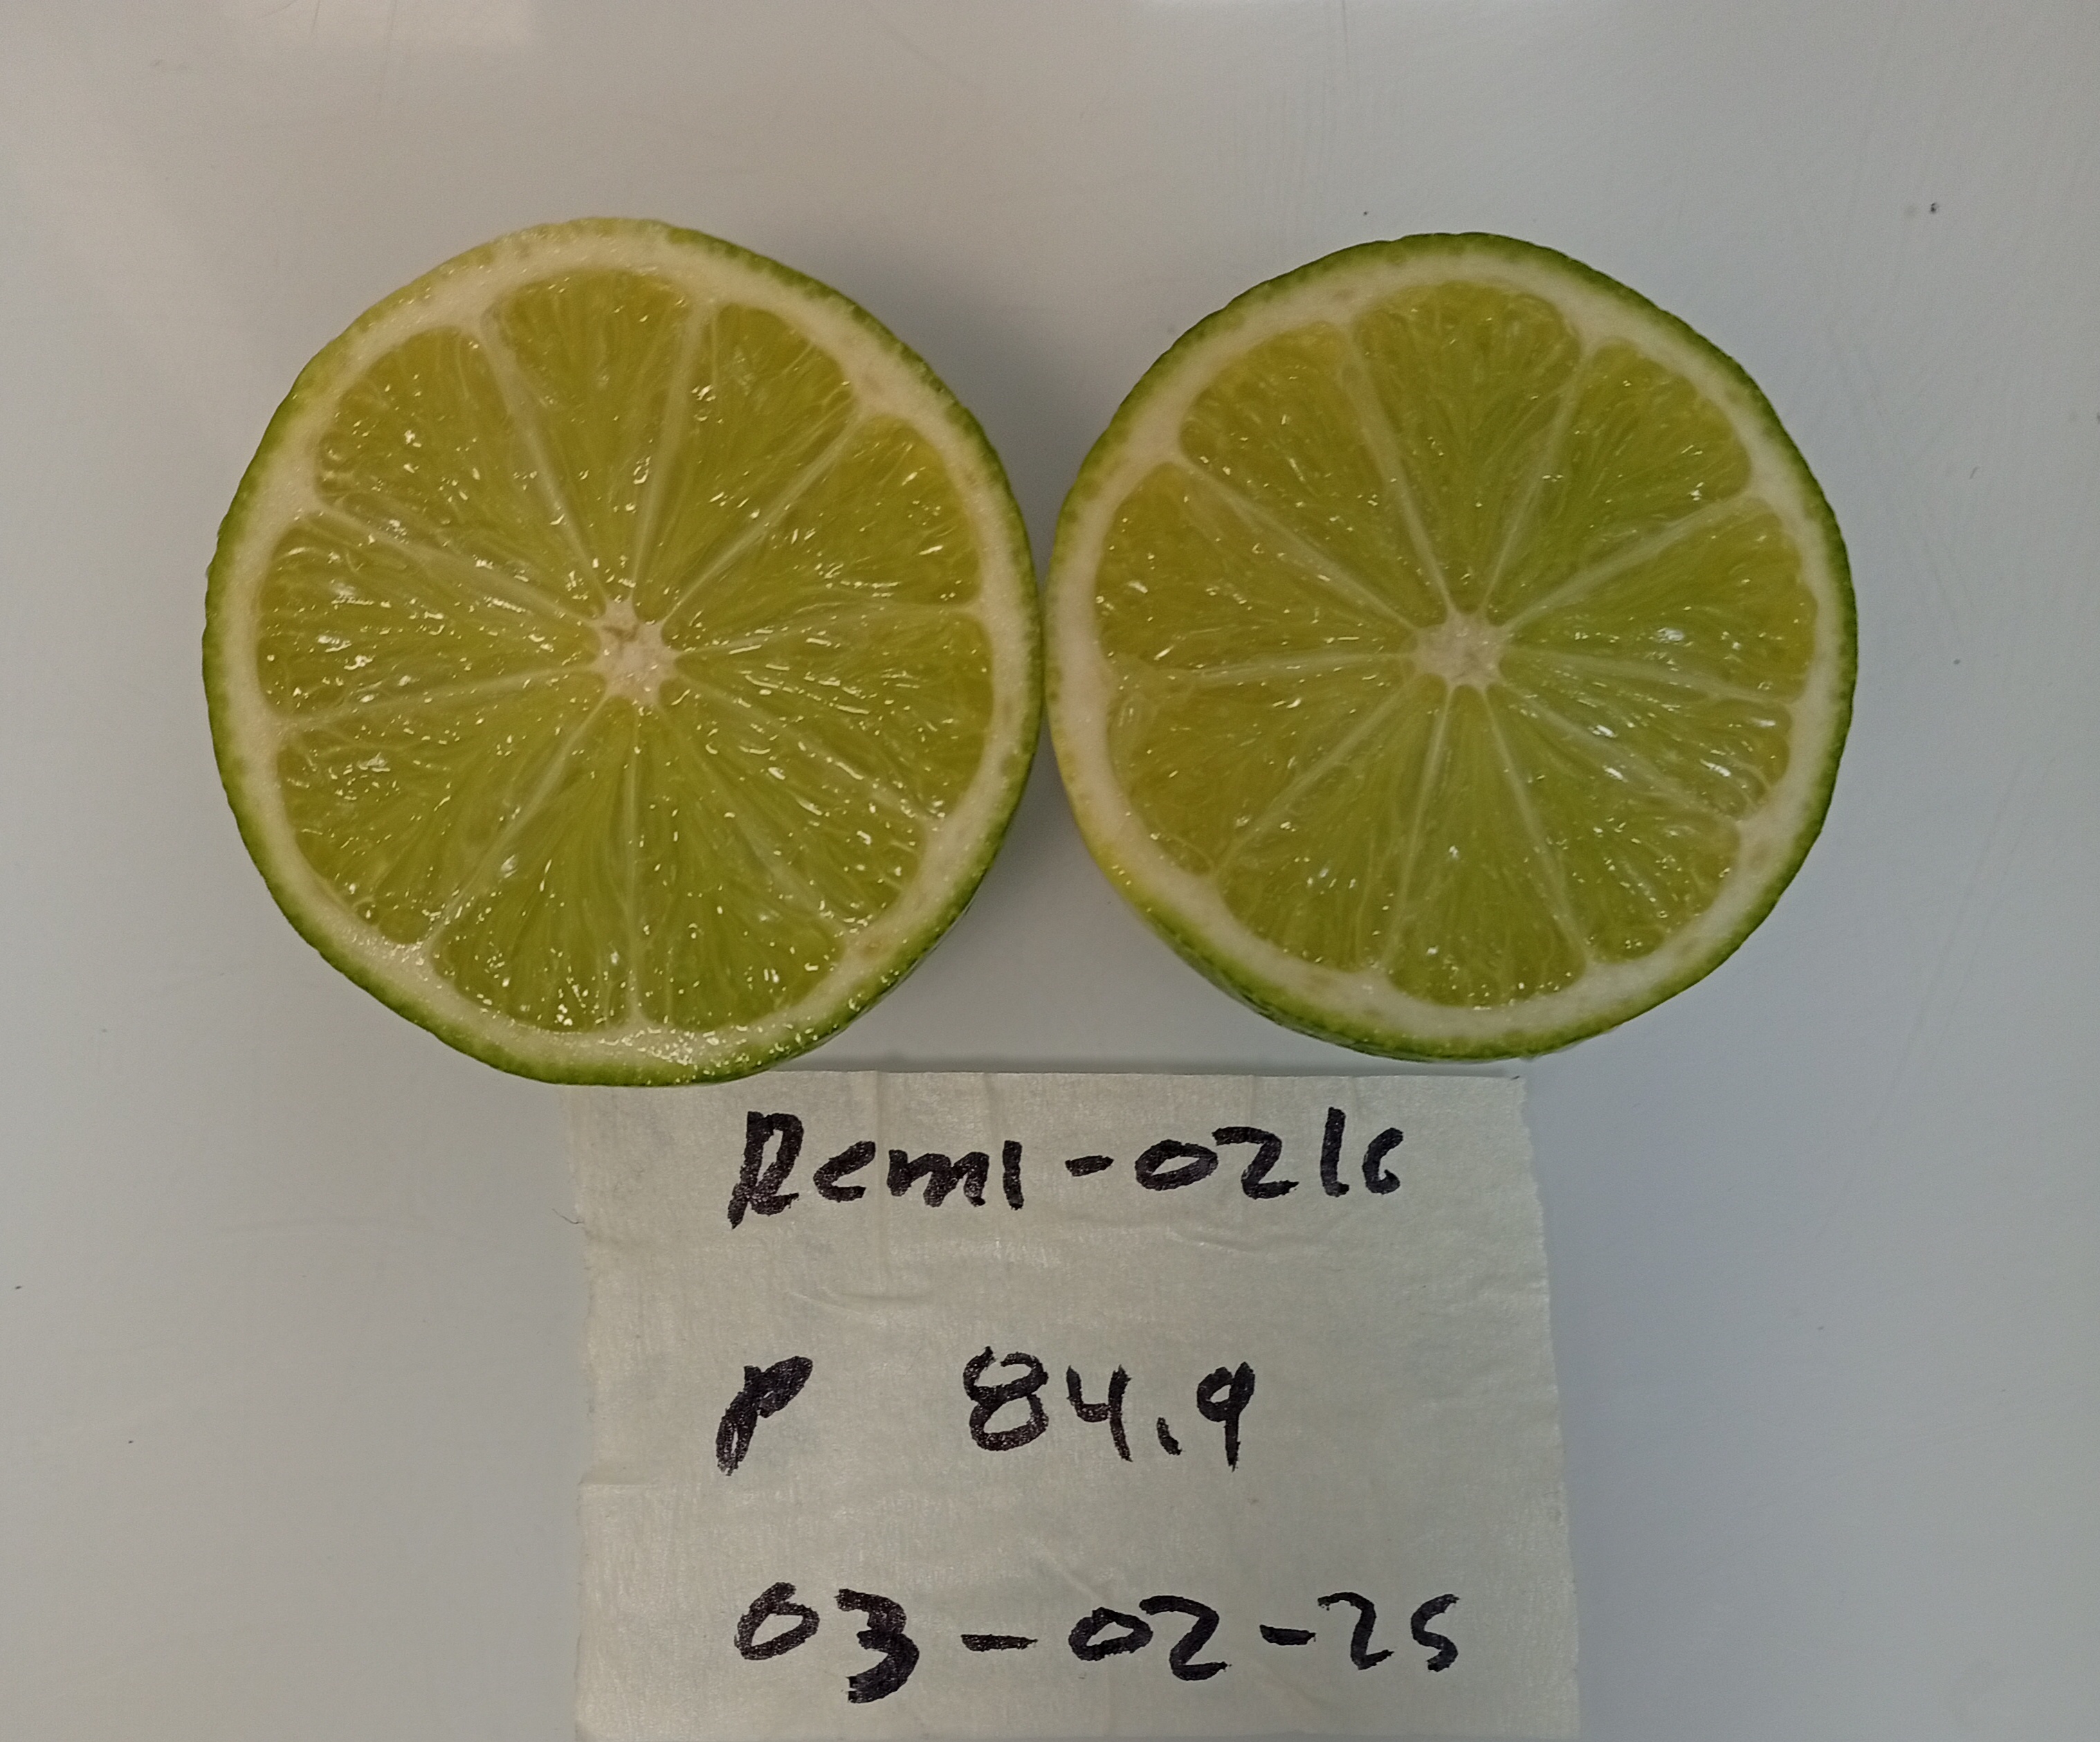 Reml-0216
P 84.9
03-02-25